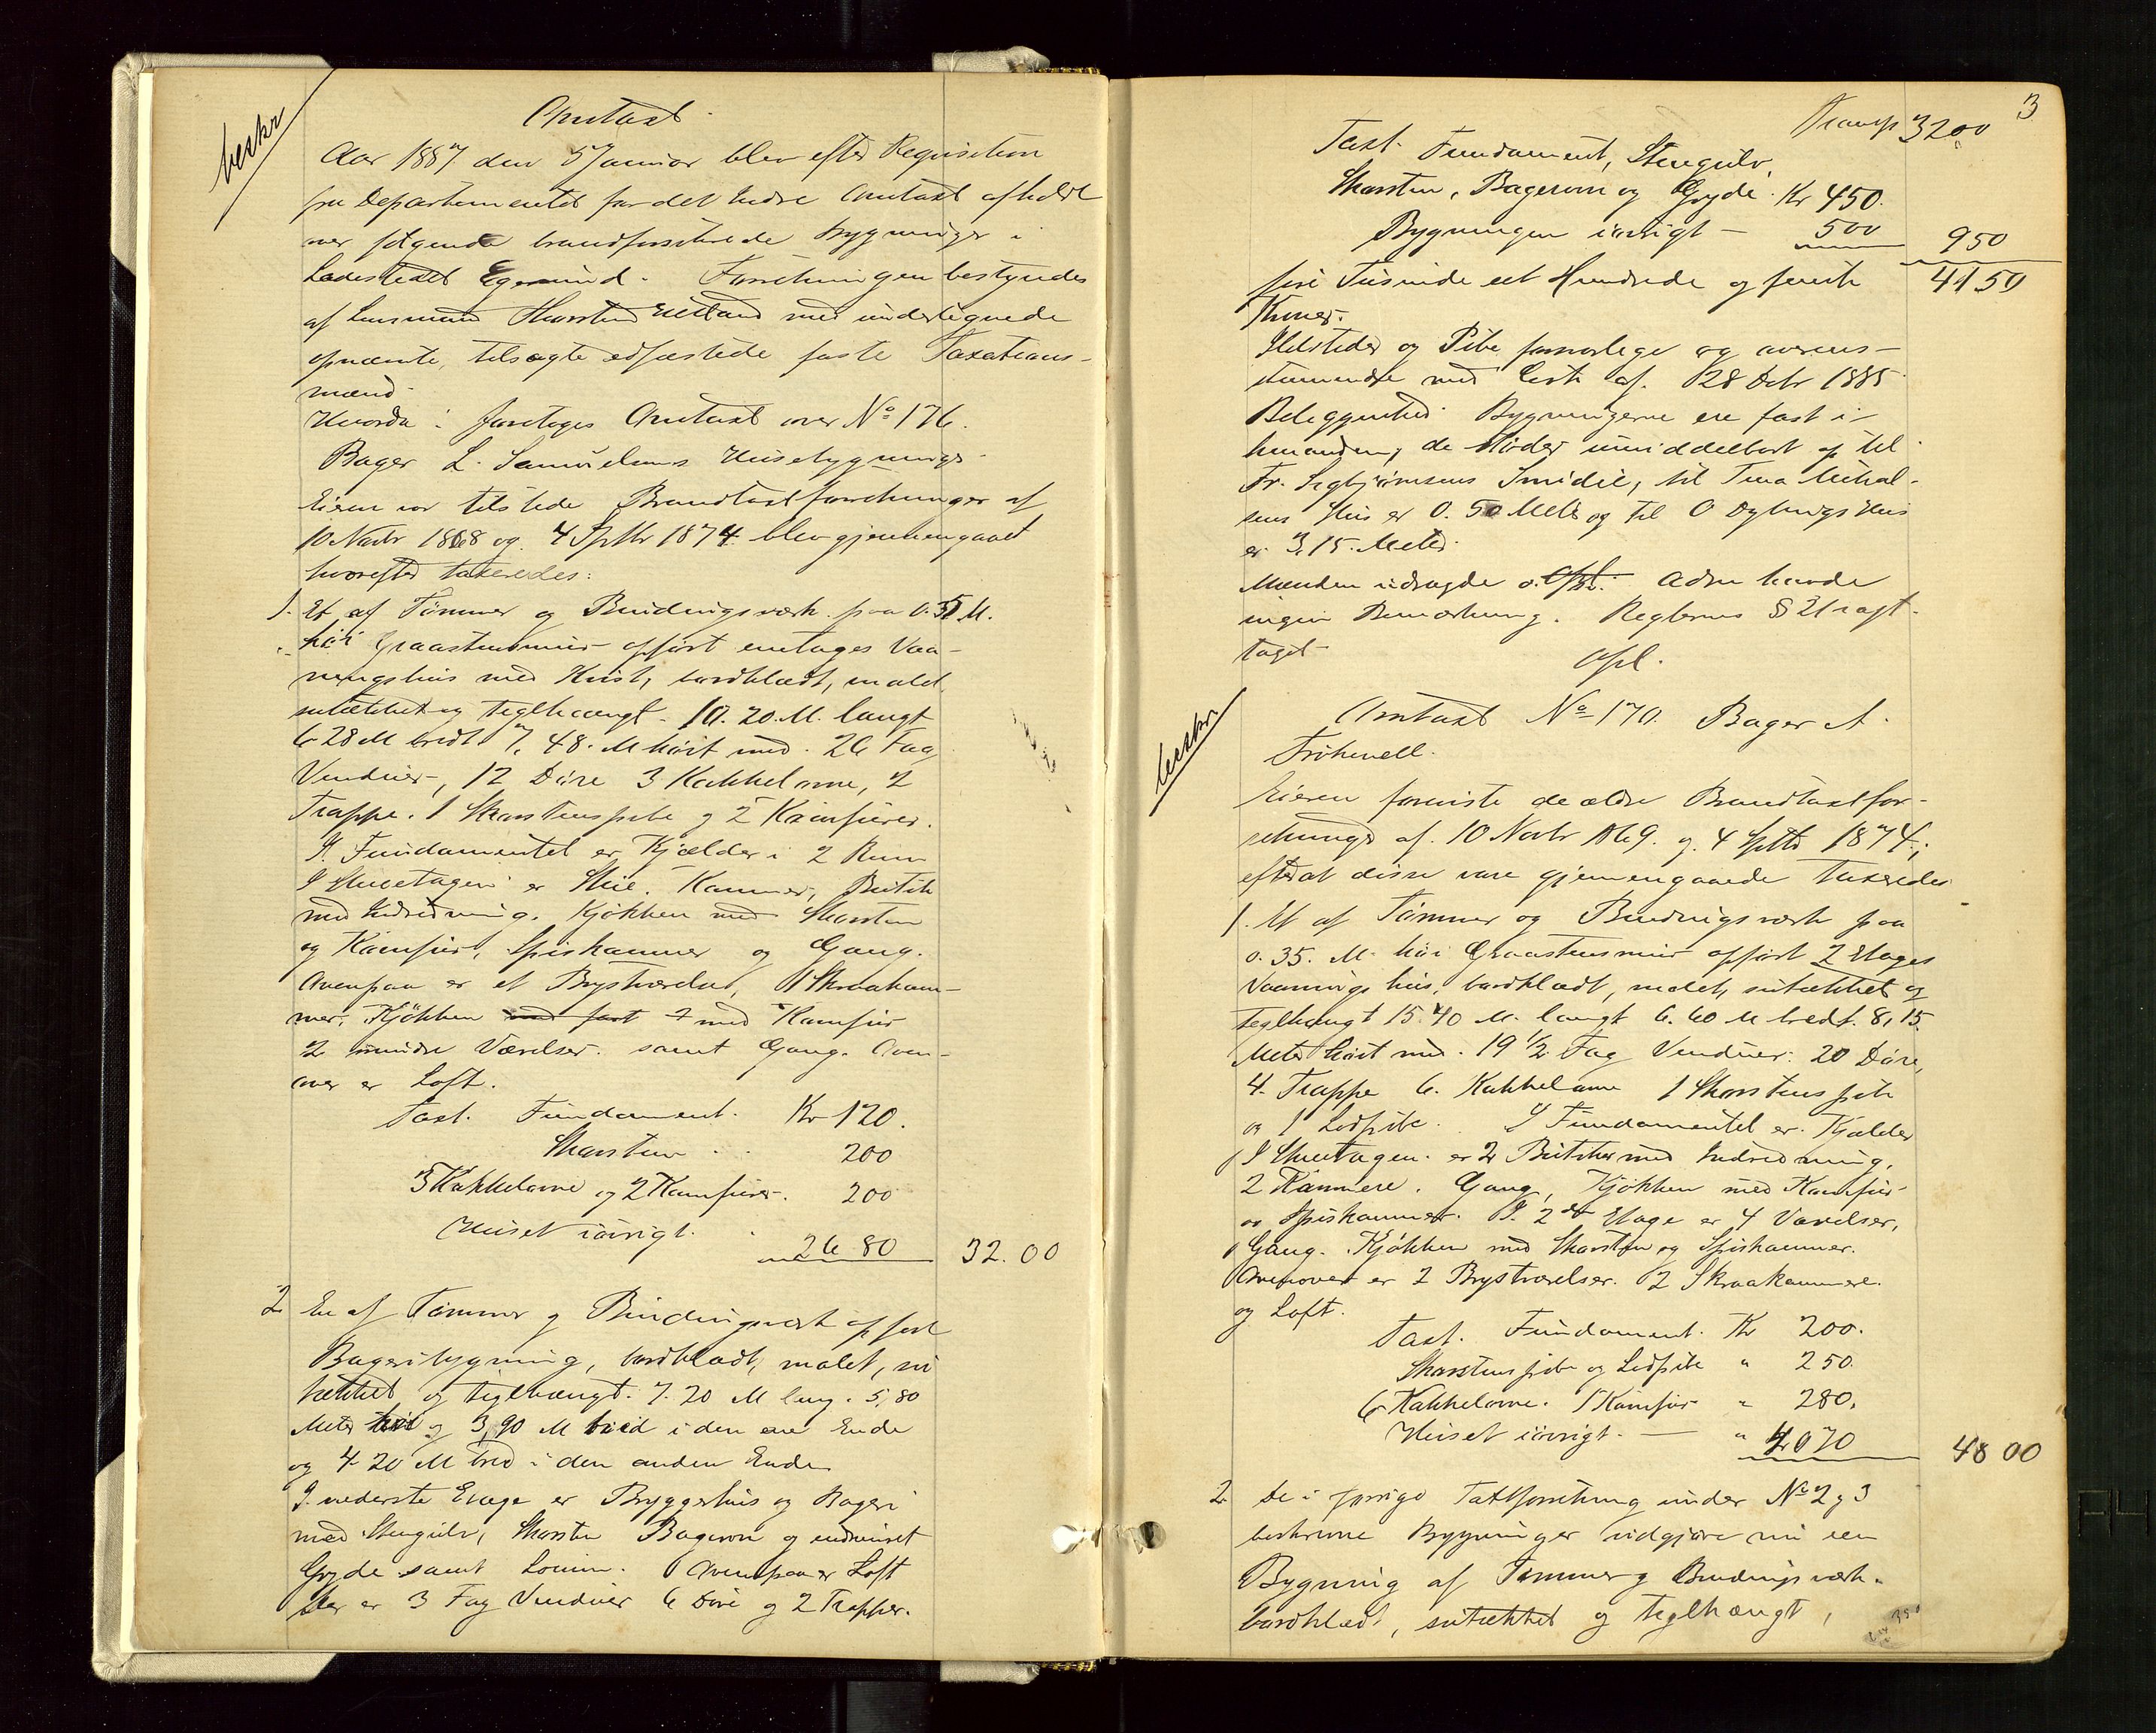 beskr
Omtaxt
Aar 1887 den 5 Januar blev efter Requisition
fra Departementet for det Indre Omtaxt afholdt
over følgende brandforsikrede Bygninger i
Ladestedet Egersund. Forretningen bestyredes
af Lensmand Thorsten med undertegnede
opnævnte, tilsagte edfæstede faste Taxations-
mænd
Hvorda: foretoges Omtaxt over No 176.
Bager L. Samuelsens Husebygninger
Eieren var tilstede Brandtaxtforretninger af
10 Novbr 1868 og 4 Sptbr 1874 blev gjennemgaaet
hvorefter taxeredes:
1. Et af Tømmer og Bindingsværk paa 0.51 M.
høi Graastensmur opført enetages Vaa-
ningshus med Kvist, bordklædt, malet
sutækket og teglhængt. 10.20. M. langt
6.28 M bredt 7,48. M høit med. 26 Fag
Vinduer, 12 Døre 3 Kakkelovne, 2
Trappe. 1 Skorstenspibe og 2 Kamfurer.
I Fundamentet er Kjælder i 2 Rum
I Stueetagen er Stue. Kammer, Butik
med Indredning. Kjøkken med Skorsten
og Kamfur, Spiskammer og Gang.
Ovenpaa er et Brystværelse, 1 Skraakam-
mer, Kjøkken med Kamfur
2 mindre Værelser. samt Gang. Oven-
over er Loft.
Taxt. Fundament. Kr 120.
Skorsten 200
3 Kakkelovne og 2 Kamfurer. 200
Huset iøvrigt. 2680 32.00
2 En af Tømmer og Bindingsværk opført
Bageribygning, bordklædt, malet, su
tækket og teglhængt. 7.20 M lang. 5,80
Meter høi og 3,90 M bred i den ene Ende
og 4.20 M bred i den anden Ende
I nederste Etage er Bryggerhus og Bageri
med Stengulv, Skorsten Bagerovn og indmuret
Gryde samt Lovim. Ovenpaa er Loft
Der er 3 Fag Vinduer 6 Døre og 2 Trapper.
3
Transp 3200
Taxt. Fundament, Stengulv,
Skorsten, Bagerovn og Gryde. Kr 450.
Bygningen iøvrigt – 500 950
fire Tusinde eet Hundrede og femti 4150
Kroner.
Ildsteder og Pibe forsvarlige og overens-
stemmende med Lov af. 28 Debr 1885
Beliggenhed. Bygningerne ere fast i
hinanden, de støder umiddelbart op til
Fr. Smidie, til Tina
sens Hus er 0.50 Meter og til O Dybings Hus
er 3,15. Meter.
Manden udsagde o. opl. Adm havde
ingen Bemærkning. Reglernes § 21 iagt-
taget
Opl.
beskr
Omtaxt No 170. Bager A.
Eieren foreviste de ældre Brandtaxtfor-
retninger af. 10 Novbr 1869. og 4 Sptbr 1874;
efterat disse vare gjennemgaaede taxeredes
1. Et af Tømmer og Bindingsværk paa
0.35. M. høi Graastensmur opført 2 Etages
Vaaningshus, bordklædt, malet, sutækket og
teglhængt 15.40 M. langt 6.60 M bredt. 8,15
Meter høit med. 19 1/2 Fag Vinduer. 20 Døre,
4 Trappe 6. Kakkelovne 1 Skorstenspibe
og 1 Lodpibe. I Fundamentet er Kjælder
I Stueetagen. er 2 Butikker med Indredning,
2 Kammere. Gang, Kjøkken med Kamfur
og Spiskammer. I. 2den Etage er 4 Værelser,
Gang. Kjøkken med Skorsten og Spiskammer.
Ovenover er 2 Brystværelser. 2 Skraakammere.
og Loft.
Taxt. Fundament. Kr 200.
Skorstenspibe og Lodpibe " 250.
6 Kakkelovne. 1 Kamfur " 280.
Huset iøvrigt. — " 4070 48 00
2. De i forrige Taxtforretning under No 2 og 3
beskrevne Bygninger udgjøre nu een
Bygning af Tømmer og Bindingsværk.
bordklædt, sutækket og teglhængt,